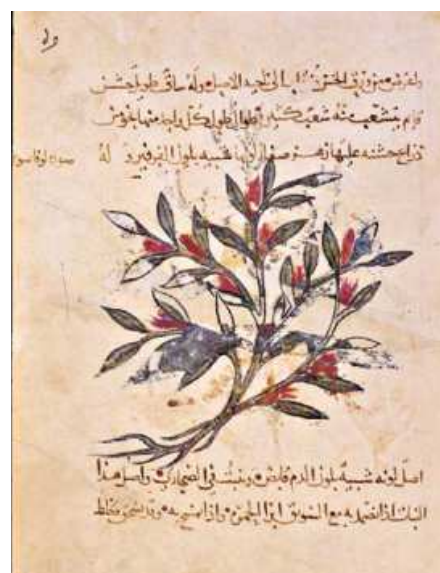 من ورق الخس الى ناحية الاصل وله ساق طويل خشن
قايم يتشعب منه شعب كثير طوال طول كل واحد منها نحو من
ذراع خشنه عليها زهر صغار لونها شبيه بلون الفرفير و له
اصل لونه شبيه بلون الدم قابض وينبت في الصحارى واصل هذا
النبات اذا تضمد به مع السويق ابرا الحمره واذا تمسح به وقد سحق وخلط